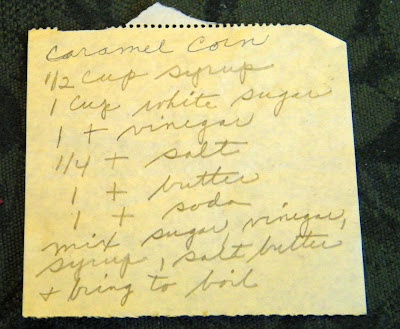 Caramel Corn
1/2 cup syrup
1 cup white sugar
1 t vinegar
1/4 t salt
1 t butter
1 t soda
mix sugar, vinegar,
syrup, salt, butter
+ bring to boil